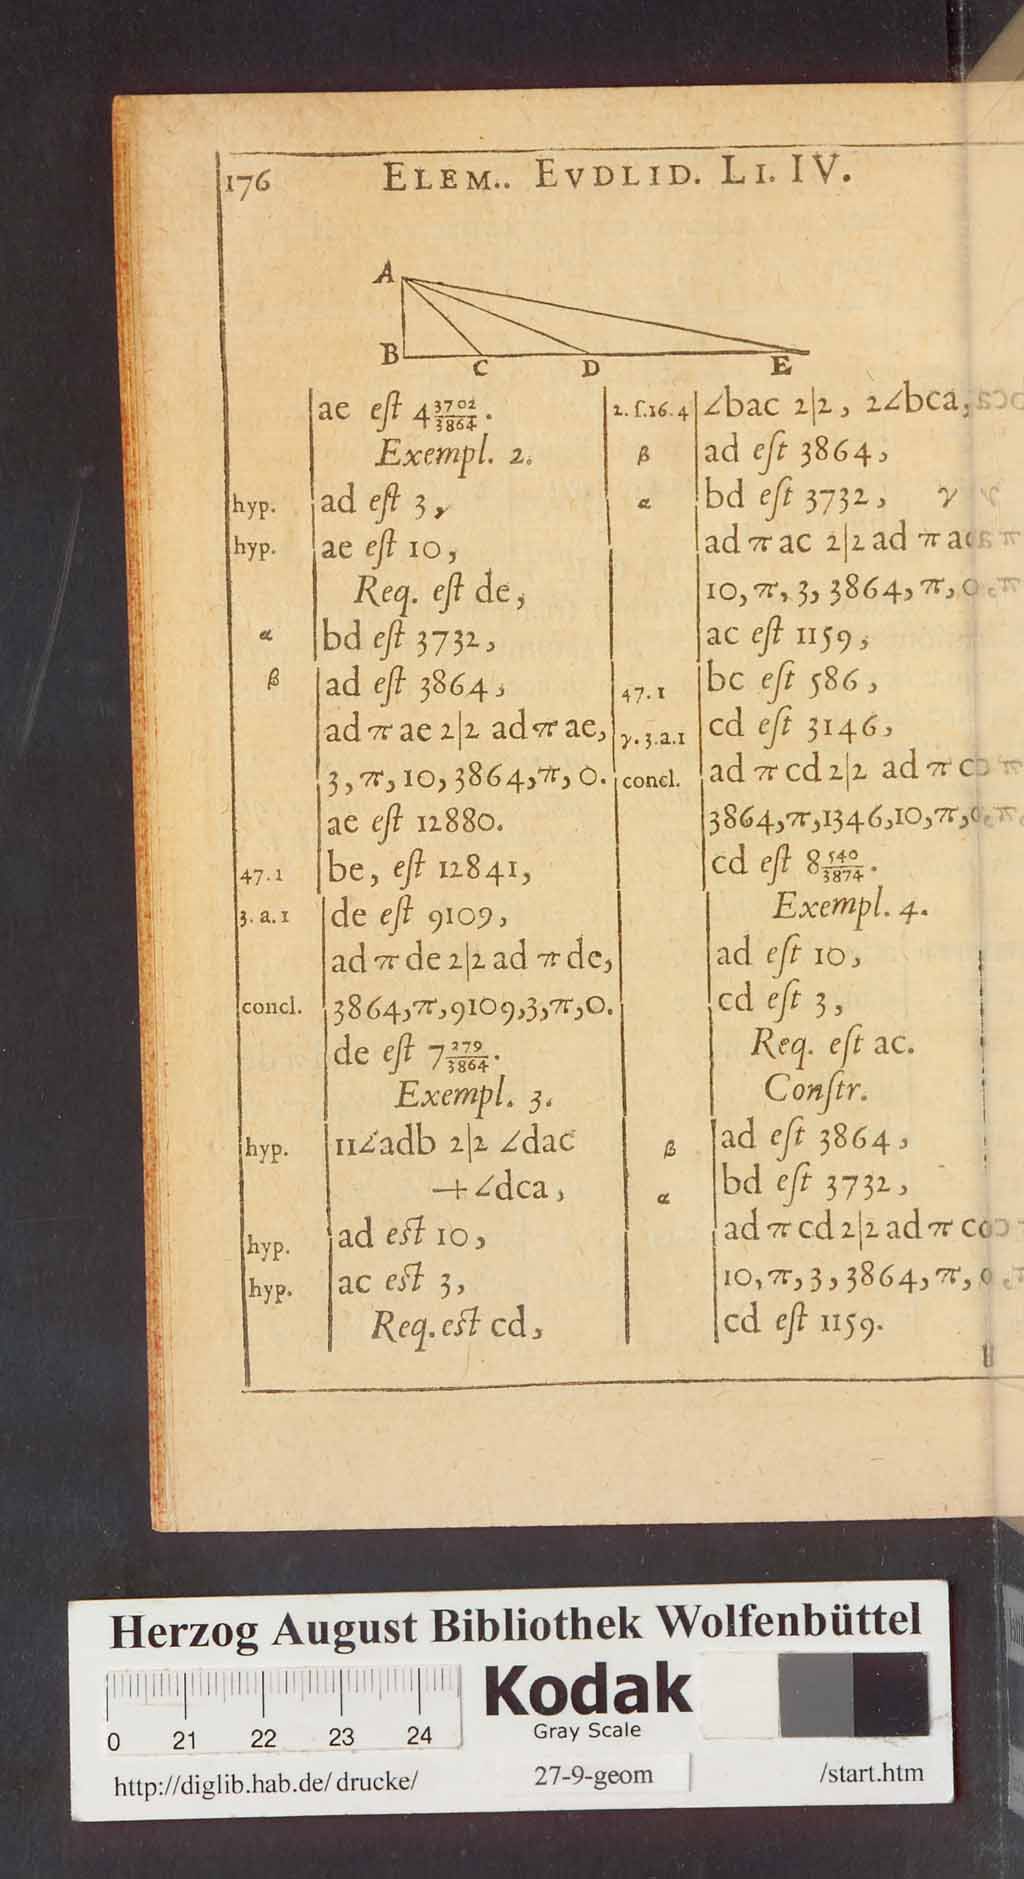 176 ELEM.. EVDLID. LI. IV.
A
B C D E
ae eſt 4 3702/3864.
Exempl. 2.
hyp. ad eſt 3,
hyp. ae eſt 10,
Req. eſt de,
α bd eſt 3732,
β ad eſt 3864,
ad π ae 2|2 ad π ae,
3, π, 10, 3864, π, 0.
ae eſt 12880.
47.1 be, eſt 12841,
3.a.1 de eſt 9109,
ad π de 2|2 ad π de,
concl. 3864, π, 9109, 3, π, 0.
de eſt 7 279/3864.
Exempl. 3.
hyp. 11∠adb 2|2 ∠dac
+ ∠dca,
hyp. ad eſt 10,
hyp. ac eſt 3,
Req. eſt cd,
2.ſ.16.4 ∠bac 2|2, 2∠bca,
β ad eſt 3864,
α bd eſt 3732, γ
ad π ac 2|2 ad π ac
10, π, 3, 3864, π, 0
ac eſt 1159,
47.1 bc eſt 586,
γ.3.a.1 cd eſt 3146,
concl. ad π cd 2|2 ad π
3864, π, 1346, 10, π,
cd eſt 8 540/3874.
Exempl. 4.
ad eſt 10,
cd eſt 3,
Req. eſt ac.
Conſtr.
β ad eſt 3864,
α bd eſt 3732,
ad π cd 2|2 ad π
10, π, 3, 3864, π,
cd eſt 1159.
Herzog August Bibliothek Wolfenbüttel
0 21 22 23 24
Kodak
Gray Scale
http://diglib.hab.de/drucke/ 27-9-geom /start.htm